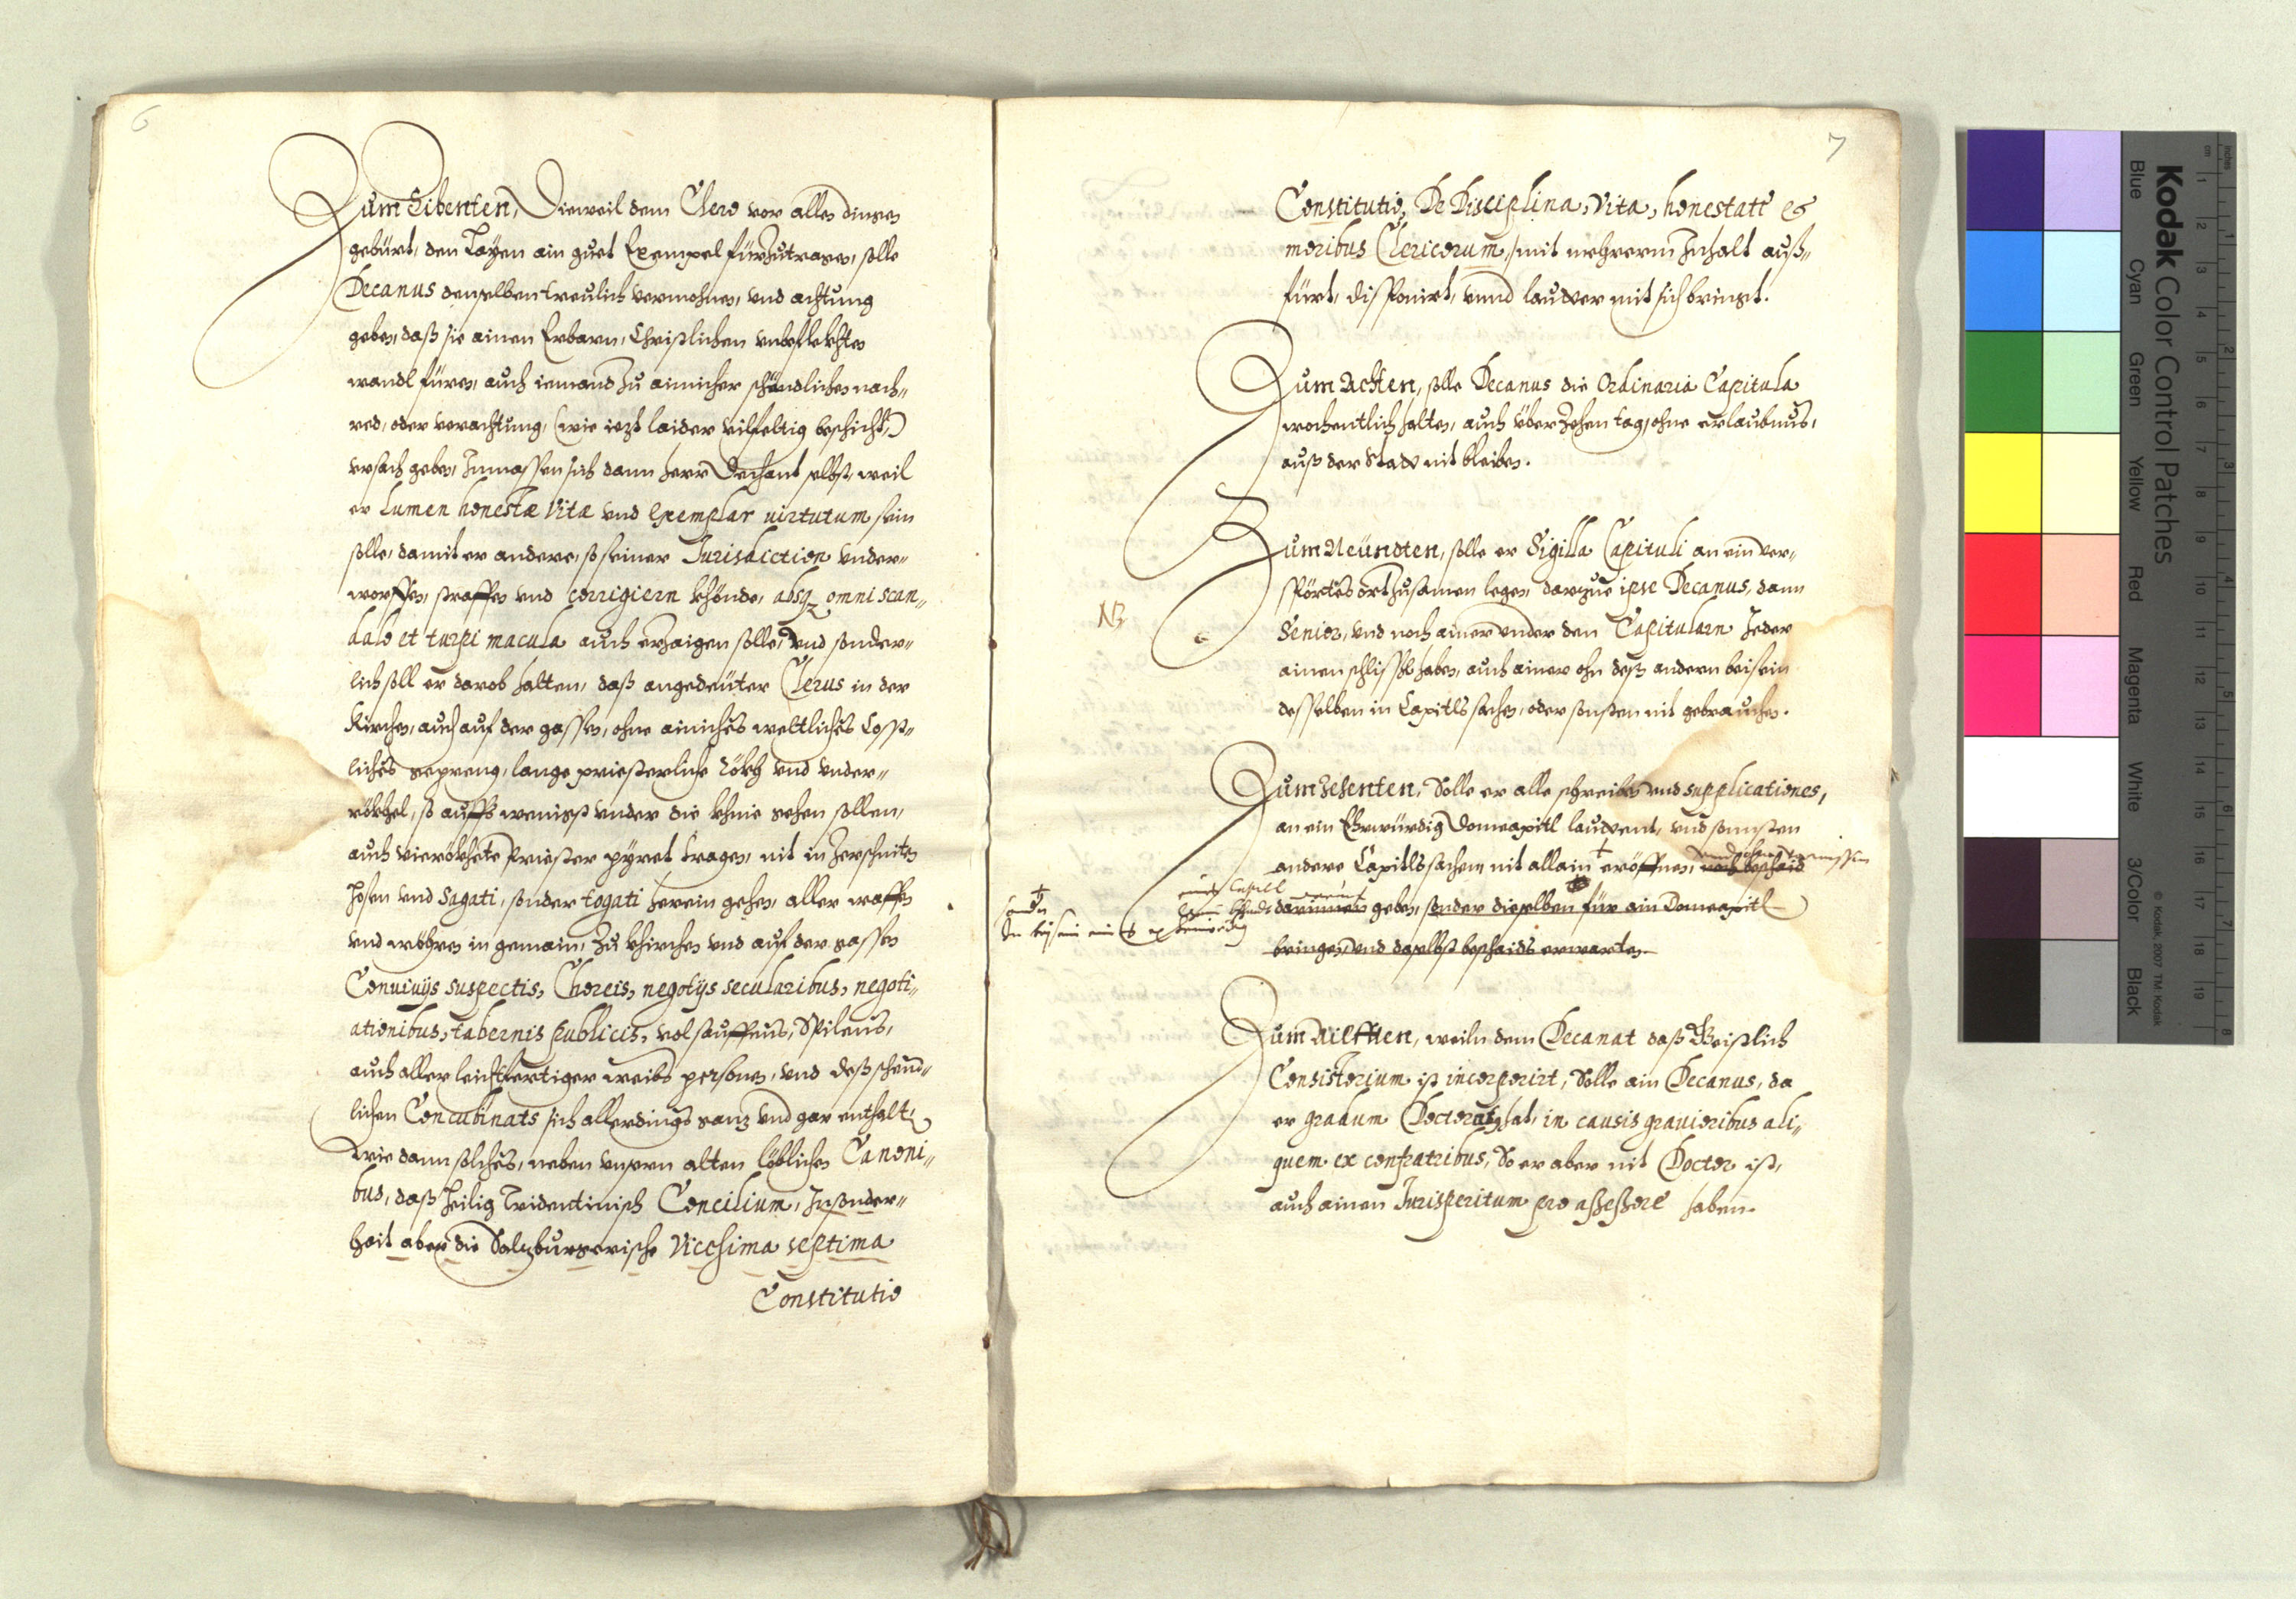 6
Zum Sibenten, Dieweil dem Clero vor allen dingen
gebürt, den Layen ain guet Exempel fürzutragen, solle
Decanus denselben treulich vermohnen, vnd achtung
geben, daß sie ainen Erbarn, Christlichen vnbeflekhten
wandl füren, auch iemand zu ainicher schändlichen nach„
red, oder verachtung, (wie iezt laider vilfeltig beschicht,)
vrsach geben, Inmassen sich dann herr Dechant selbst, weil
er Lumen honestæ Vitæ vnd exemplar uirtutum sein
solle, damit er andere, so seiner Jurisdiction vnder„
worffen, straffen vnd corrigiern khönde, absq, omni scan„
dalo et turpi macula auch erzaigen solle, Vnd sonder„
lich soll er darob halten, daß angedeüter Clerus in der
Kirchen, auch auf der gassen, ohne ainichs weltlichs Cosst„
lichs gepreng, lange priesterliche Rökh vnd vnder„
rökhel, so auffs wenigst vnder die khnie gehen sollen,
auch vierökhete Priester pyret tragen, nit in zerschniten
Hosen vnd Sagati, sonder togati herein gehen, aller waffen
vnd wöhren in gemain, zu khirchen vnd auf der gassen
Conuiuijs suspectis, Choreis, negotijs secularibus, negoti„
ationibus, tabernis publicis, vol sauffens, Spilens,
auch aller leichtfertiger weibs personen, vnd deß schend„
lichen Concubinats sich allerdings ganz vnd gar enthalt,
Wie dann solches, neben vnsern alten löblichen Canoni„
bus, daß heilig Tridentinisch Concilium, Insonder„
hait aber die Salzburgerische Vicesima septima
Constitutio
7
Constitutio, De Disciplina, Vita, honestate et
moribus Clericorum, mit mehrerm Inhalt auß„
fürt, disponirt, vnnd lautter mit sich bringt.
Zum Achten, solle Decanus die Ordinaria Capitula
wochentlich halten, auch über zehen tag, ohne erlaubnus,
auß der Statt nit bleiben.
NB
Zum Neündten, solle er Sigilla Capituli an ein ver„
spörtes ort zusamen legen, darzue ipse Decanus, dann
Senior, vnd noch ainer vnder den Capitularn Jeder
ainen schlissl haben, auch ainer ohn deß andern beisein
desselben in Capitls sachen, oder sonsten nit gebrauchen.
Zum Zehenten, Solle er alle schreiben vnd supplicationes,
an ein Ehrwürdig Domcapitl lauttent, vnd sonnsten
andere Capitls sachen, nit allain + eröffnen, noch beschaid
vnd ohne vorwissen
eines Capitl
darinnen geben, sonder dieselben für ain Domcapitl
+
bringen, vnd daselbst beschaids erwarten.
Zum Ailfften, weiln dem Decanat daß Geistlich
Consistorium ist incorporirt, Solle ain Decanus, da
er gradum Doctoratus hat, in causis grauioribus ali„
quem ex confratribus, So er aber nit Doctor ist,
auch ainen Jurisperitum pro assessore haben.
Kodak Color Control Patches
Blue Cyan Green Yellow Red Magenta White 3/Color Black
© Kodak, 2007 TM: Kodak
inches 1 2 3 4 5 6 7 8
cm 1 2 3 4 5 6 7 8 9 10 11 12 13 14 15 16 17 18 19